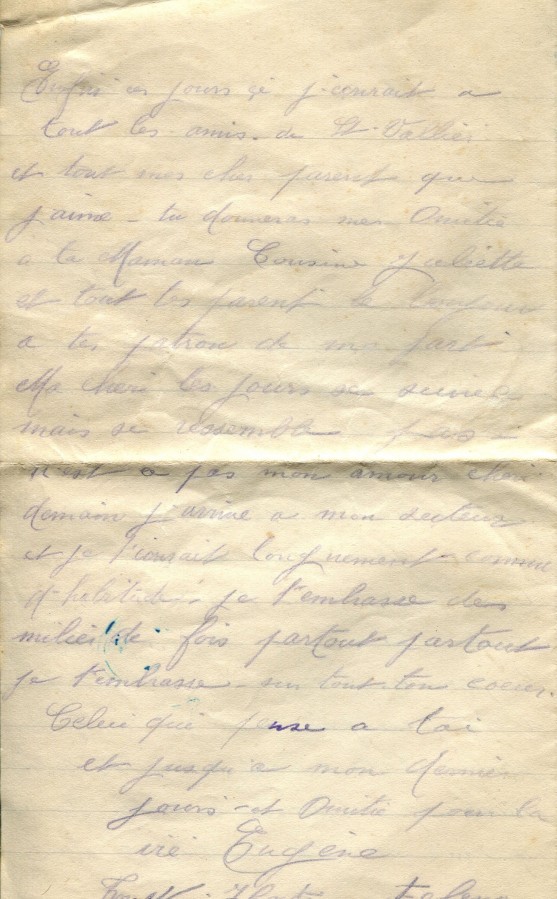 Enfin ces jours çi j'ecrirait a
tout les amis de St-Vallier
et tout mes cher parent que
j'aime - tu donneras mes Amitié
a ta Maman Cousine Juliette
et tout les parent le bonjour
a tes patron de ma part
Ma cheri les jours se suive
mais se ressemble pas -
n'est a pas mon amour cheri
demain j'arrive a mon secteur
et je t'ecrirait longuement comme
d'habitude. je t'embrasse des
milier de fois partout partout
je t'embrasse sur tout ton coeur
Celui qui pense a toi
et jusqu'a mon dernier
jours - et Amitié pour la
vie Eugène